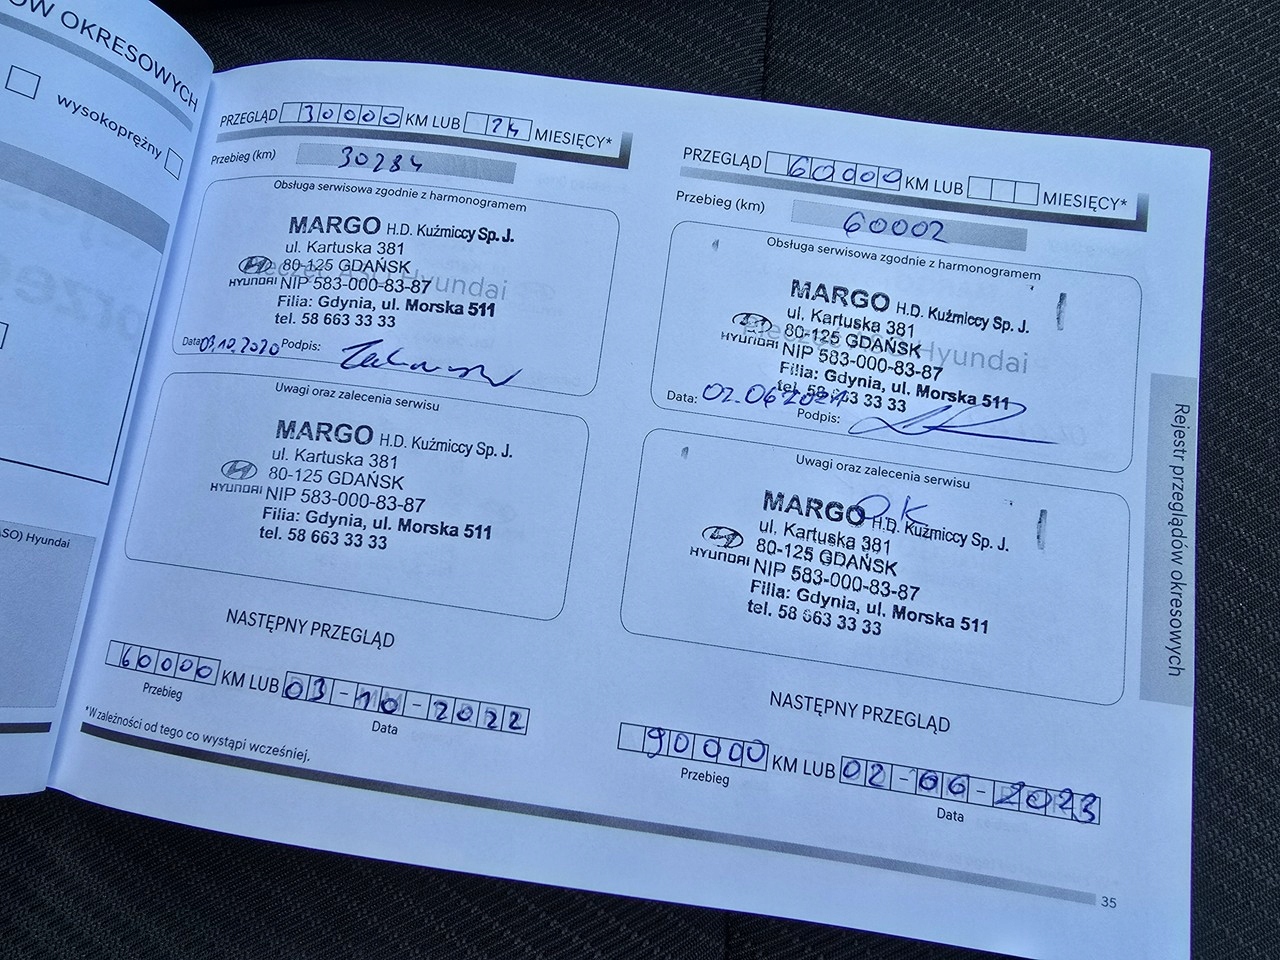 ÓW OKRESOWYCH
wysokoprężny
ASO) Hyundai
PRZEGLĄD 30000 KM LUB 24 MIESIĘCY*
Przebieg (km) 30284
Obsługa serwisowa zgodnie z harmonogramem
MARGO H.D. Kuźmiccy Sp. J.
ul. Kartuska 381
80-125 GDAŃSK
Pieczęć ASO Hyundai
HYUNDAI NIP 583-000-83-87
Filia: Gdynia, ul. Morska 511
tel. 58 663 33 33
Data: 03.10.2020 Podpis:
Uwagi oraz zalecenia serwisu
MARGO H.D. Kuźmiccy Sp. J.
ul. Kartuska 381
80-125 GDAŃSK
HYUNDAI NIP 583-000-83-87
Filia: Gdynia, ul. Morska 511
tel. 58 663 33 33
NASTĘPNY PRZEGLĄD
60000 KM LUB 03-10-2022
Przebieg
Data
*W zależności od tego co wystąpi wcześniej.
PRZEGLĄD 60000 KM LUB MIESIĘCY*
Przebieg (km) 60002
Obsługa serwisowa zgodnie z harmonogramem
MARGO H.D. Kuźmiccy Sp. J.
ul. Kartuska 381
80-125 GDAŃSK
Pieczęć ASO Hyundai
HYUNDAI NIP 583-000-83-87
Filia: Gdynia, ul. Morska 511
tel. 58 663 33 33
Data: 02.06.2021 Podpis:
Uwagi oraz zalecenia serwisu
OK
MARGO H.D. Kuźmiccy Sp. J.
ul. Kartuska 381
80-125 GDAŃSK
HYUNDAI NIP 583-000-83-87
Filia: Gdynia, ul. Morska 511
tel. 58 663 33 33
NASTĘPNY PRZEGLĄD
90000 KM LUB 02-06-2023
Przebieg
Data
35
Rejestr przeglądów okresowych